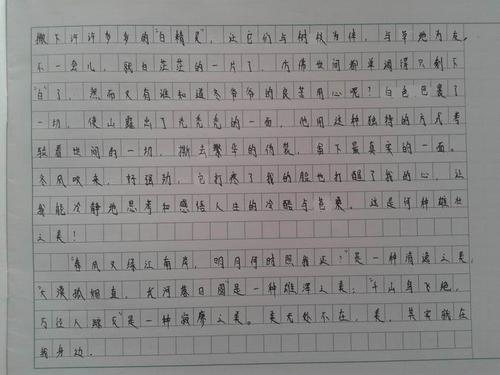 撒下许许多多的“白精灵”，让它们与树枝为伴，与草地为友。
不一会儿，就白茫茫的一片了，仿佛世间都单调得只剩下
“白”了，然而又有谁知道冬爷爷的良苦用心呢？白色包裹了
一切，使山露出了光秃秃的一面，他用这种独特的方式考
验着世间的一切，撕去繁华的伪装，留下最真实的一面。
冬风吹来，好强劲，它打疼了我的脸也打醒了我的心，让
我能冷静地思考和感悟人生的冷酷与苍衰。这是何种雄壮
之美！
“春风又绿江南岸，明月何时照我还？”是一种清远之美，
“大漠孤烟直，长河落日圆”是一种雄浑之美；“千山鸟飞绝，
万径人踪灭”是一种寂寥之美。美无处不在，美，其实就在
我身边．